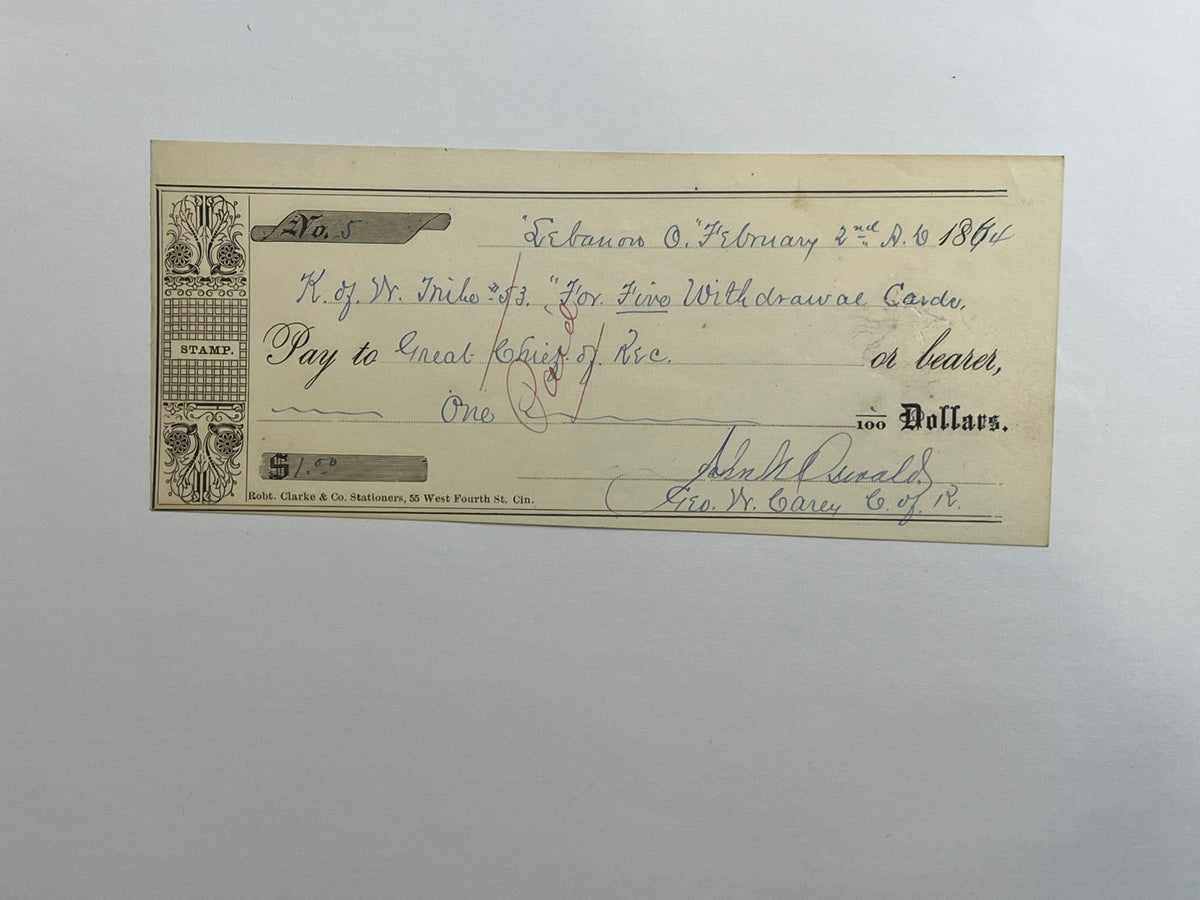 No. 5
"Lebanon O." February 2nd A.D 1864
K. of W. Tribe "53. "For Five Withdrawal Cards.
STAMP.
Pay to Great Chief of Rec. or bearer,
Paid
One /100 Dollars.
$1.00
John N Oswald
Robt. Clarke & Co. Stationers, 55 West Fourth St. Cin.
Geo. W. Carey C. of R.